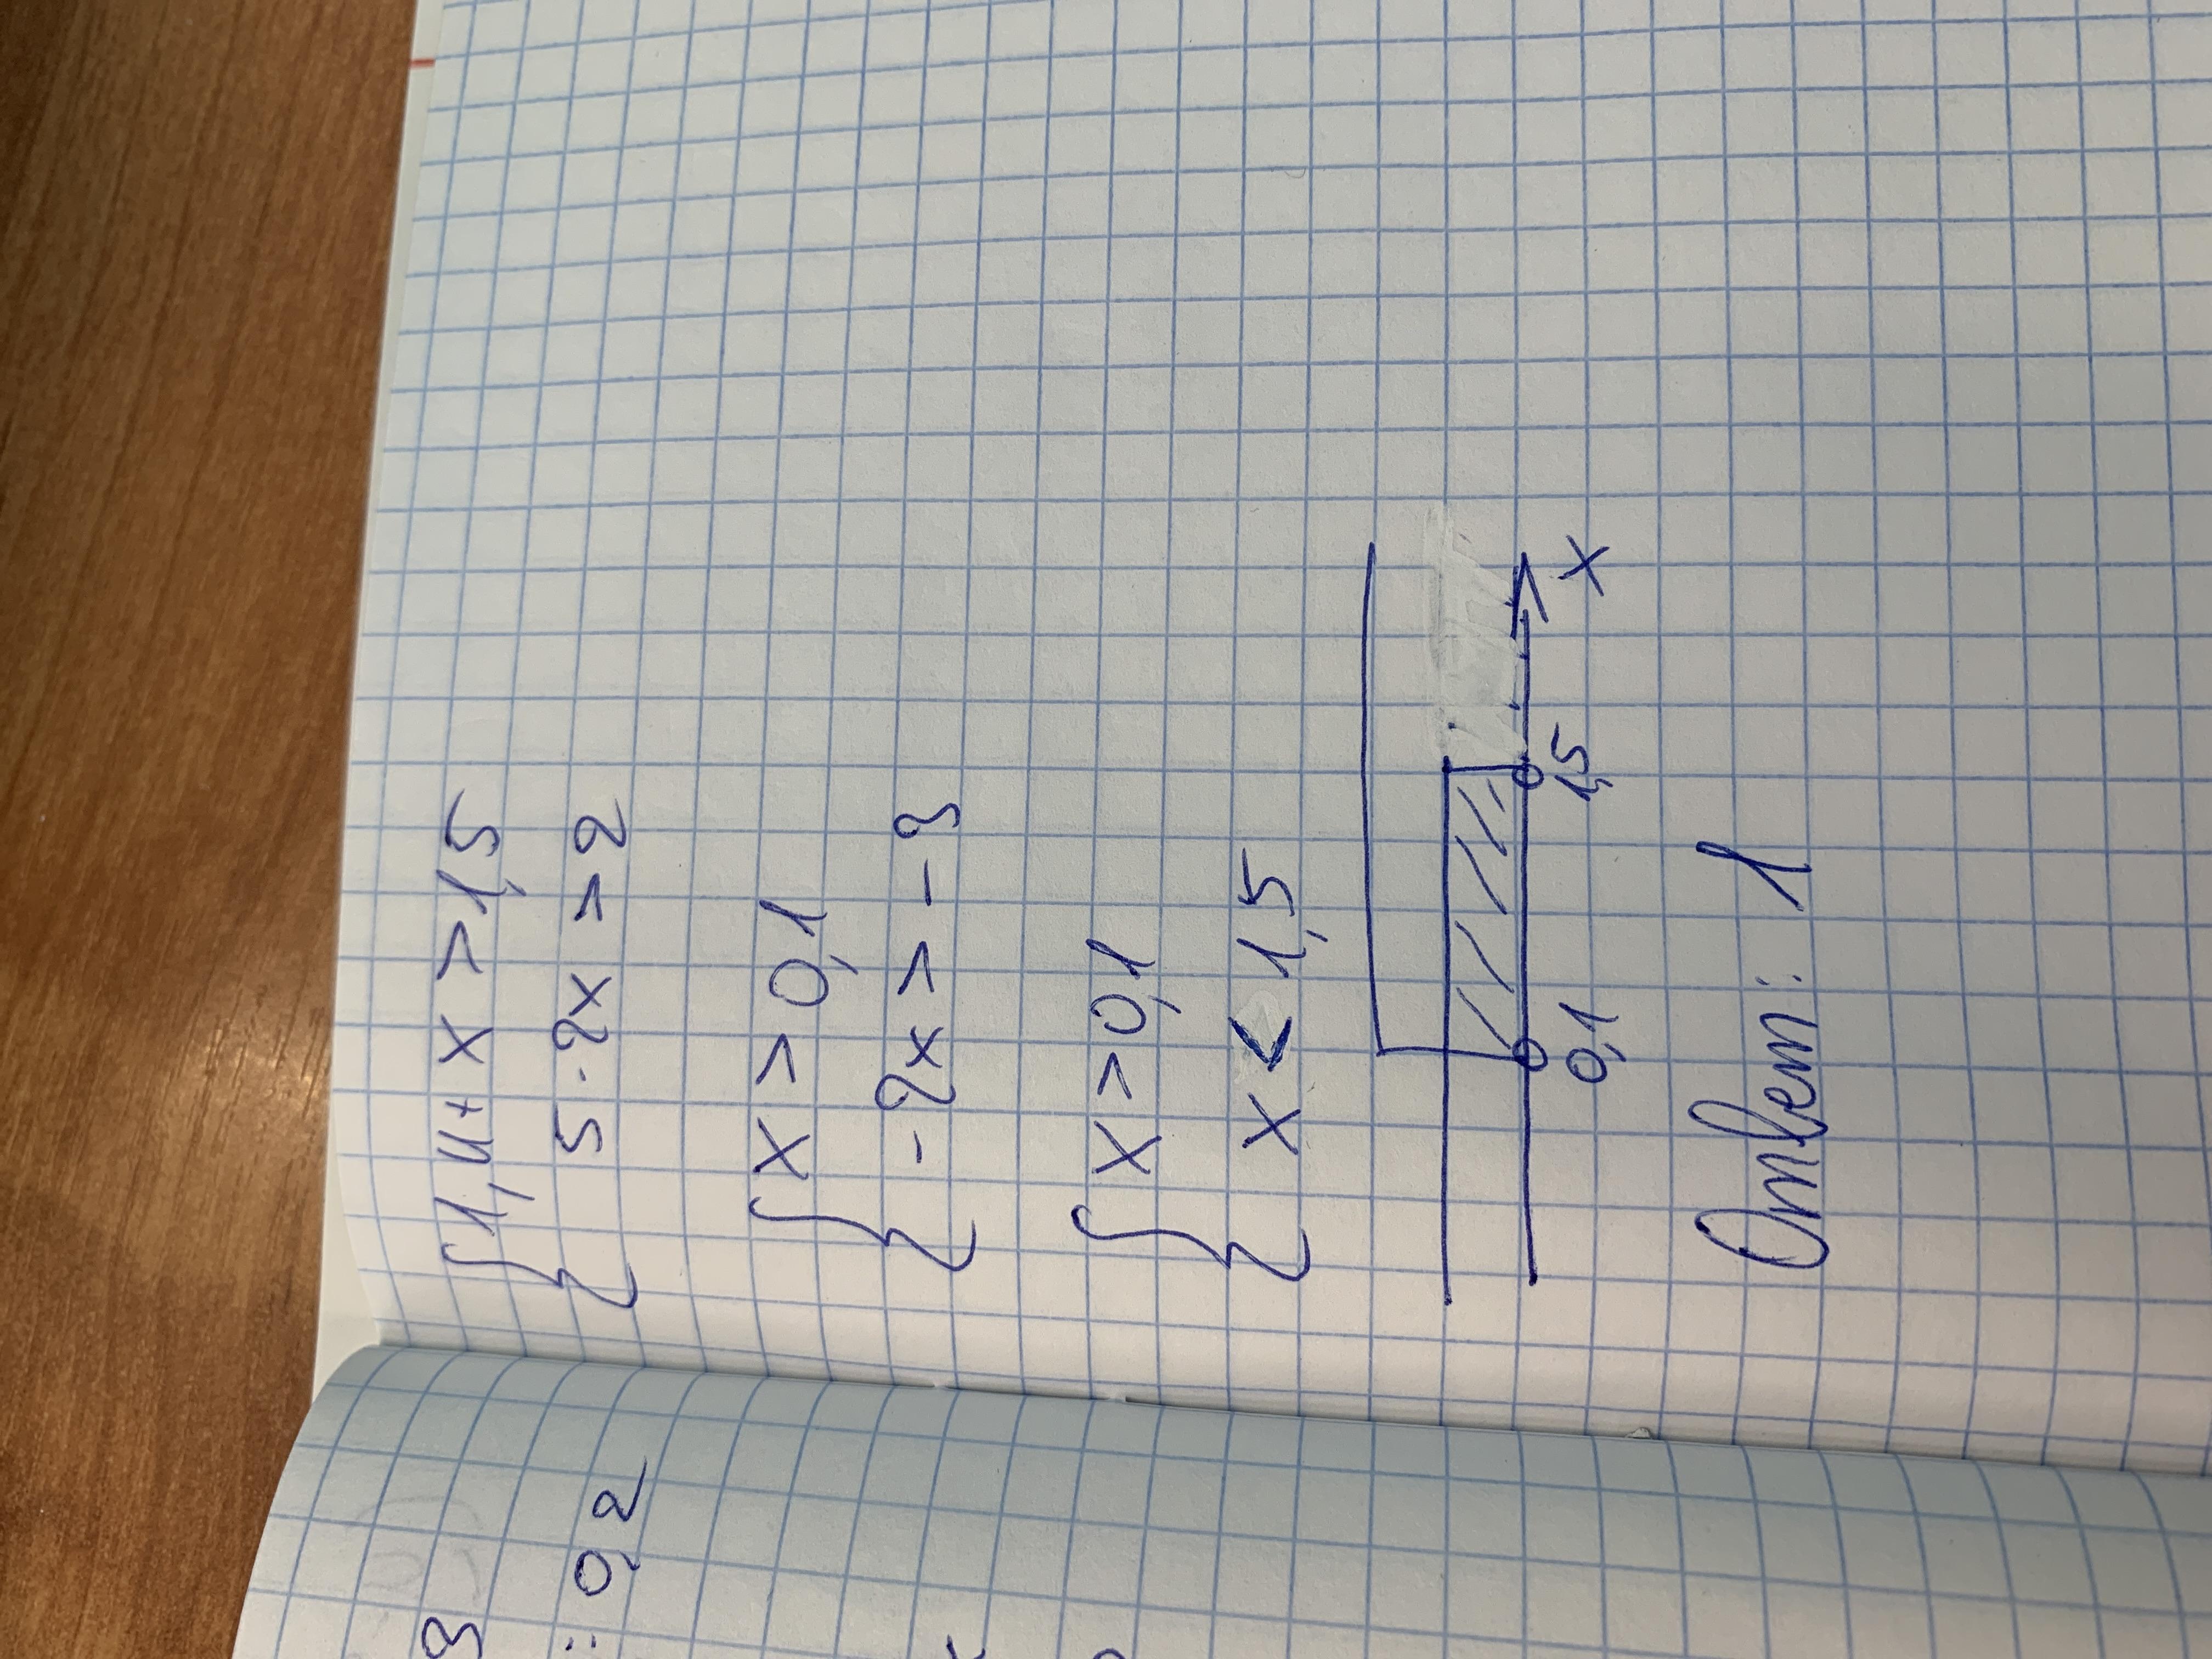 1,4+x>1,5
5-2x>2
x>0,1
-2x>-3
x>0,1
x<1,5
0,1 1,5 x
Ответ: 1
: 0,2